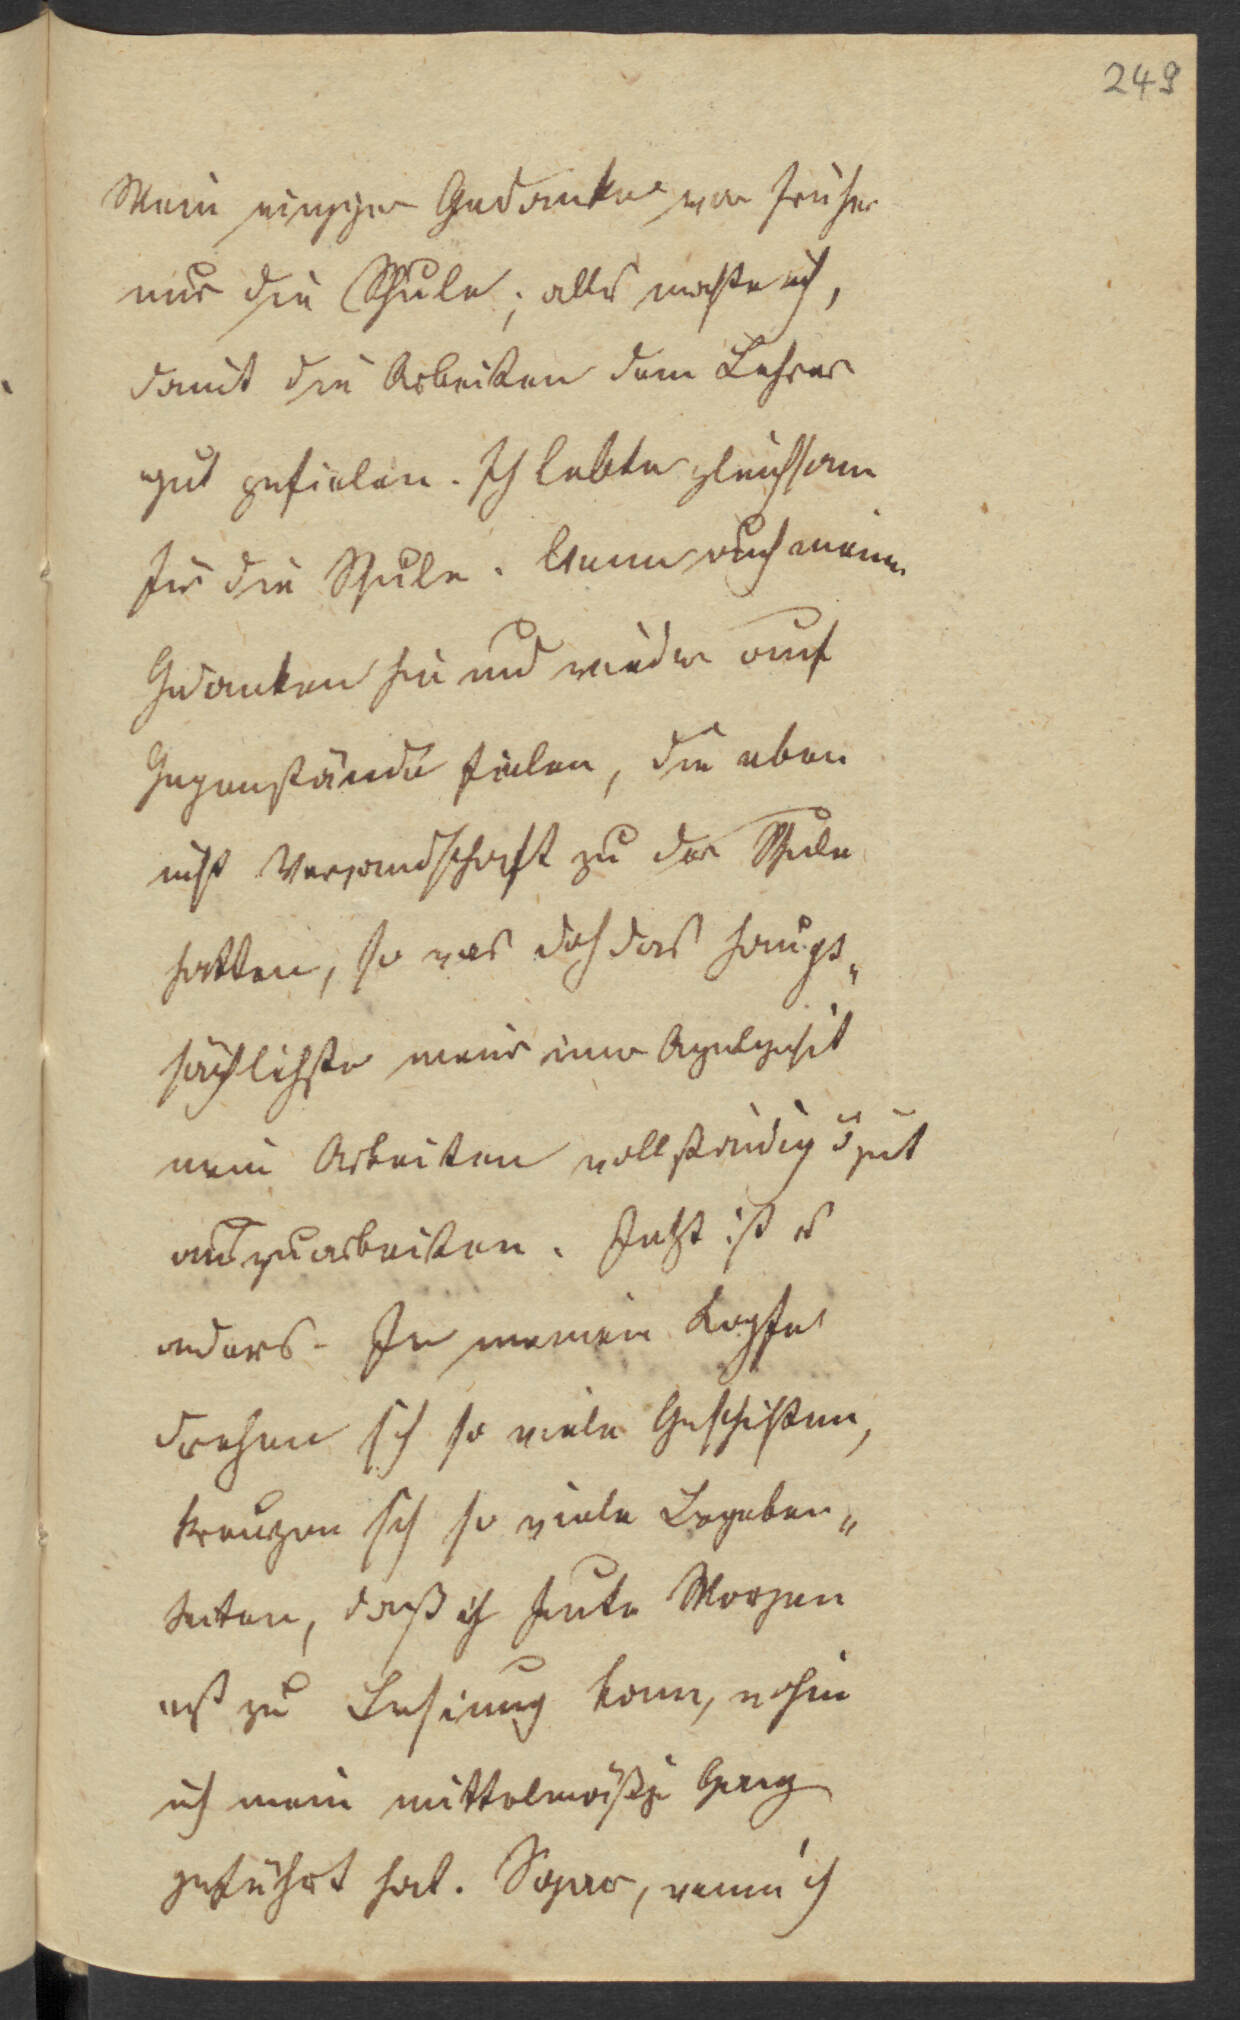 249
Mein einziger Gedanke war früher
nur die Schule; alles machte ich,
damit die Arbeiten dem Lehrer
gut gefielen. Ich lebte gleichsam
für die Schule. Wenn auch meine
Gedanken hin und wieder auf
Gegenstände fielen, die eben
nicht Verwandschaft zu der Schule
hatten, so war doch das haupt„
sächlichste mein
mein Arbeiten vollständig u gut
auszuarbeiten. Jetzt ist es
anders. In meinem Kopfe
drehen sich so viele Geschichten,
kreuzen sich so viele Begeben„
heiten, daß ich heute Morgen
erst zu Besinung kam, wohin
ich mein mittelmäßige
geführt hat. Sogar, wenn ich